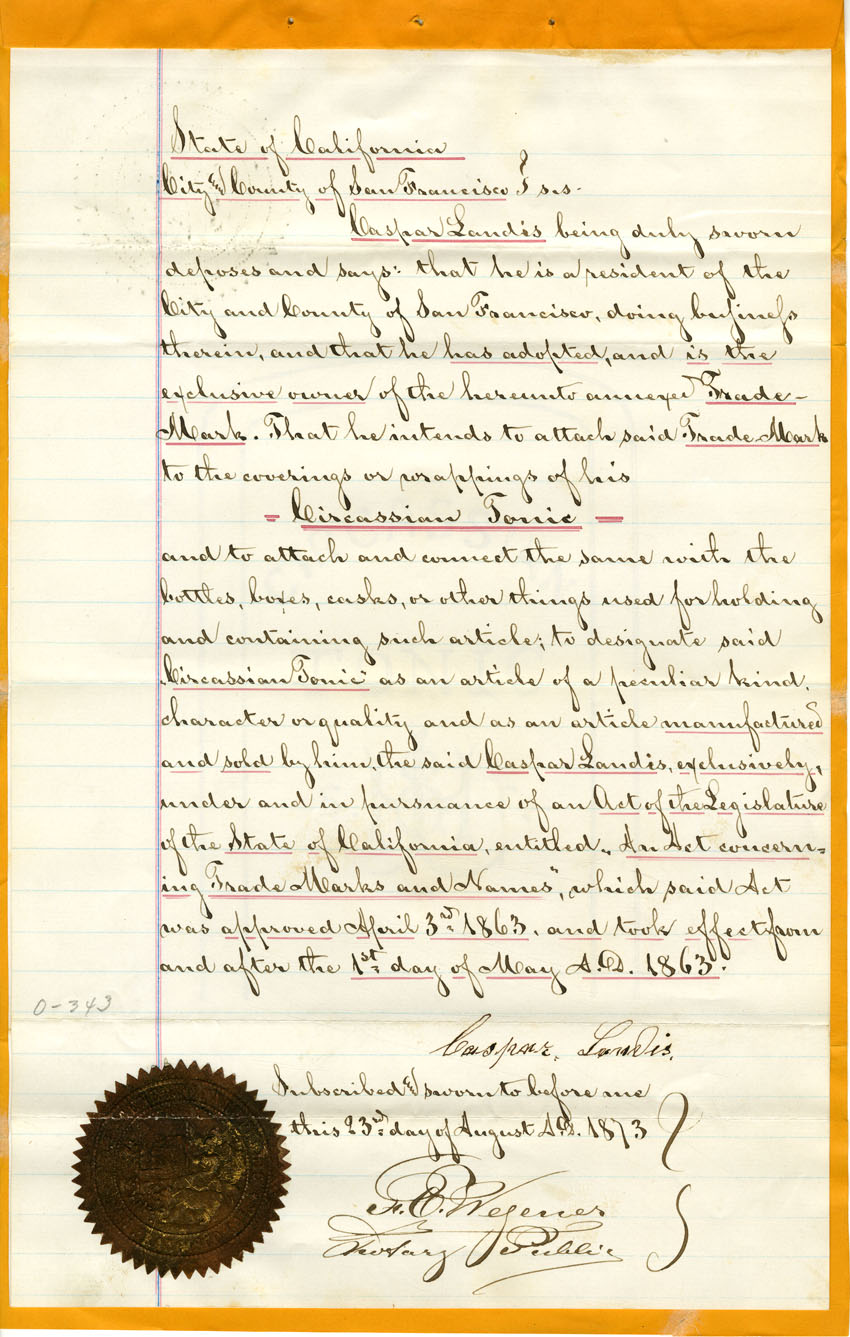 State of California
City & County of San Francisco } s.s.
Caspar Landis being duly sworn
deposes and says: that he is a resident of the
City and County of San Francisco, doing business
therein, and that he has adopted, and is the
exclusive owner of the hereunto annexed Trade-
Mark. That he intends to attach said Trade-Mark
to the coverings or wrappings of his
= Circassian Tonic =
and to attach and connect the same with the
bottles, boxes, casks, or other things used for holding
and containing such article; to designate said
„Circassian Tonic" as an article of a peculiar kind,
character or quality and as an article manufactured
and sold by him, the said Caspar Landis, exclusively,
under and in pursuance of an Act of the Legislature
of the State of California, entitled „An Act concern=
ing Trade Marks and Names", which said Act
was approved April 3rd 1863, and took effect from
and after the 1st day of May A.D. 1863.
0-343
Caspar. Landis.
Subscribed & sworn to before me
this 23rd day of August A.D. 1873
F. E. Wegener
Notary Public